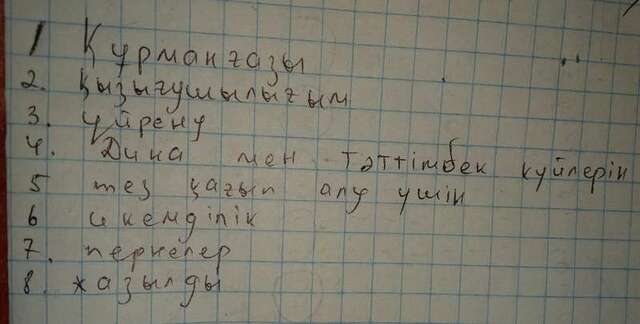 1 Құрманғазы
2. қызығушылығым
3. үйрену
4. Дина мен Тәттімбек күйлерін
5 тез қағып алу үшін
6 икемділік
7. пернелер
8. жазылды